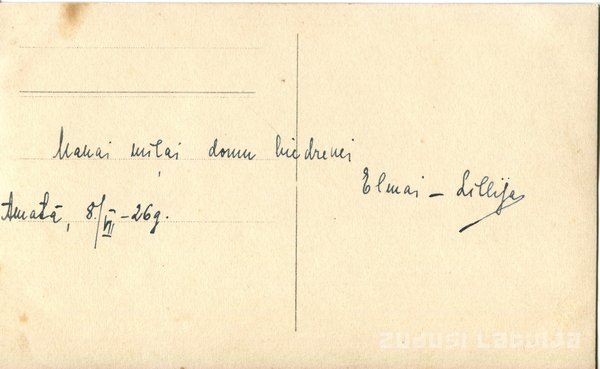 Manai mīļai domu biedrenei
Elmai – Lillija
Amatā, 8./VII – 26g.
ZUDUSI LATVIJA